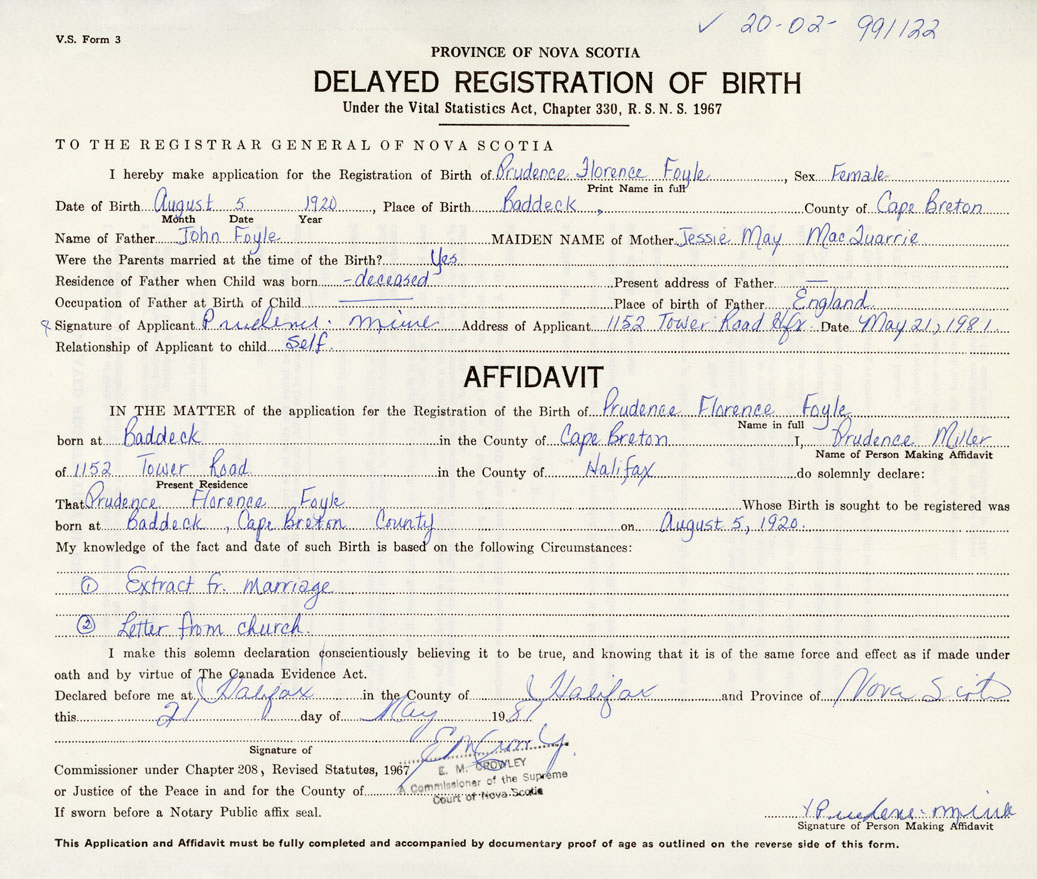 ✓ 20-02- 991122
V.S. Form 3
PROVINCE OF NOVA SCOTIA
DELAYED REGISTRATION OF BIRTH
Under the Vital Statistics Act, Chapter 330, R. S. N. S. 1967
TO THE REGISTRAR GENERAL OF NOVA SCOTIA
I hereby make application for the Registration of Birth of Prudence Florence Foyle, Sex Female
Print Name in full
Date of Birth August 5 1920, Place of Birth Baddeck, County of Cape Breton
Month Date Year
Name of Father John Foyle MAIDEN NAME of Mother Jessie May MacQuarrie
Were the Parents married at the time of the Birth? Yes
Residence of Father when Child was born - deceased Present address of Father —
Occupation of Father at Birth of Child — Place of birth of Father England
Signature of Applicant Address of Applicant 1152 Tower Road Hfx Date May 21, 1981.
Relationship of Applicant to child Self.
AFFIDAVIT
IN THE MATTER of the application for the Registration of the Birth of Prudence Florence Foyle
Name in full
born at Baddeck in the County of Cape Breton I, Prudence Miller
Name of Person Making Affidavit
of 1152 Tower Road in the County of Halifax do solemnly declare:
Present Residence
That Prudence Florence Foyle Whose Birth is sought to be registered was
born at Baddeck, Cape Breton County on August 5, 1920.
My knowledge of the fact and date of such Birth is based on the following Circumstances:
① Extract fr. marriage
② Letter from church.
I make this solemn declaration conscientiously believing it to be true, and knowing that it is of the same force and effect as if made under
oath and by virtue of The Canada Evidence Act.
Declared before me at Halifax in the County of Halifax and Province of Nova Scotia
this 21 day of May 1981
Signature of
Commissioner under Chapter 208, Revised Statutes, 1967
E. M. CROWLEY
or Justice of the Peace in and for the County of
A Commissioner of the Supreme
Court of Nova Scotia
If sworn before a Notary Public affix seal.
Signature of Person Making Affidavit
This Application and Affidavit must be fully completed and accompanied by documentary proof of age as outlined on the reverse side of this form.